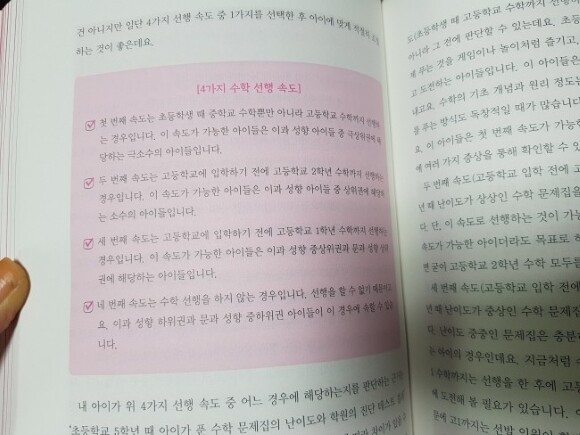 건 아니지만 일단 4가지 선행 속도 중 1가지를 선택한 후 아이에 맞게 적절히
하는 것이 좋은데요.
[4가지 수학 선행 속도]
첫 번째 속도는 초등학생 때 중학교 수학뿐만 아니라 고등학교 수학까지 선행하
는 경우입니다. 이 속도가 가능한 아이들은 이과 성향 아이들 중 극상위권에 해
당하는 극소수의 아이들입니다.
두 번째 속도는 고등학교에 입학하기 전에 고등학교 2학년 수학까지 선행하는
경우입니다. 이 속도가 가능한 아이들은 이과 성향 아이들 중 상위권에 해당하
는 소수의 아이들입니다.
세 번째 속도는 고등학교에 입학하기 전에 고등학교 1학년 수학까지 선행하는
경우입니다. 이 속도가 가능한 아이들은 이과 성향 중상위권과 문과 성향 상위
권에 해당하는 아이들입니다.
네 번째 속도는 수학 선행을 하지 않는 경우입니다. 선행을 할 수 없기 때문이고
요. 이과 성향 하위권과 문과 성향 중하위권 아이들이 이 경우에 속할 수 있습
니다.
내 아이가 위 4가지 선행 속도 중 어느 경우에 해당하는지를 판단하는
'초등학교 5학년 때 아이가 푼 수학 문제집의 난이도와 학원의 진단 테스트
도(초등학생 때 고등학교 수학까지 선행
아니라 그 전에 판단할 수 있는데요.
제 푸는 것을 게임이나 놀이처럼 즐기고,
고 도전하는 아이들입니다. 이 아이들은
내고요. 수학의 기초 개념과 원리 정도는
을 푸는 방식도 독창적일 때가 많습니다
요. 이 아이들은 첫 번째 속도가 가능한
에 여러 가지 증상을 통해 확인할 수 있
두 번째 속도(고등학교 입학 전에 고
년 때 난이도가 상상인 수학 문제집을
다. 단, 이 속도로 선행하는 것이 가능
속도가 가능한 아이더라도 목표로 하
면 굳이 고등학교 2학년 수학 모두를
세 번째 속도(고등학교 입학 전에
년 때 난이도가 중상인 수학 문제
고, 난이도 중중인 문제집은 충분히
는 아이의 경우인데요. 지금처럼
1 수학까지는 선행을 한 후에 고등
에 도전해 볼 필요가 있습니다.
문에 고1까지는 선발 의원이